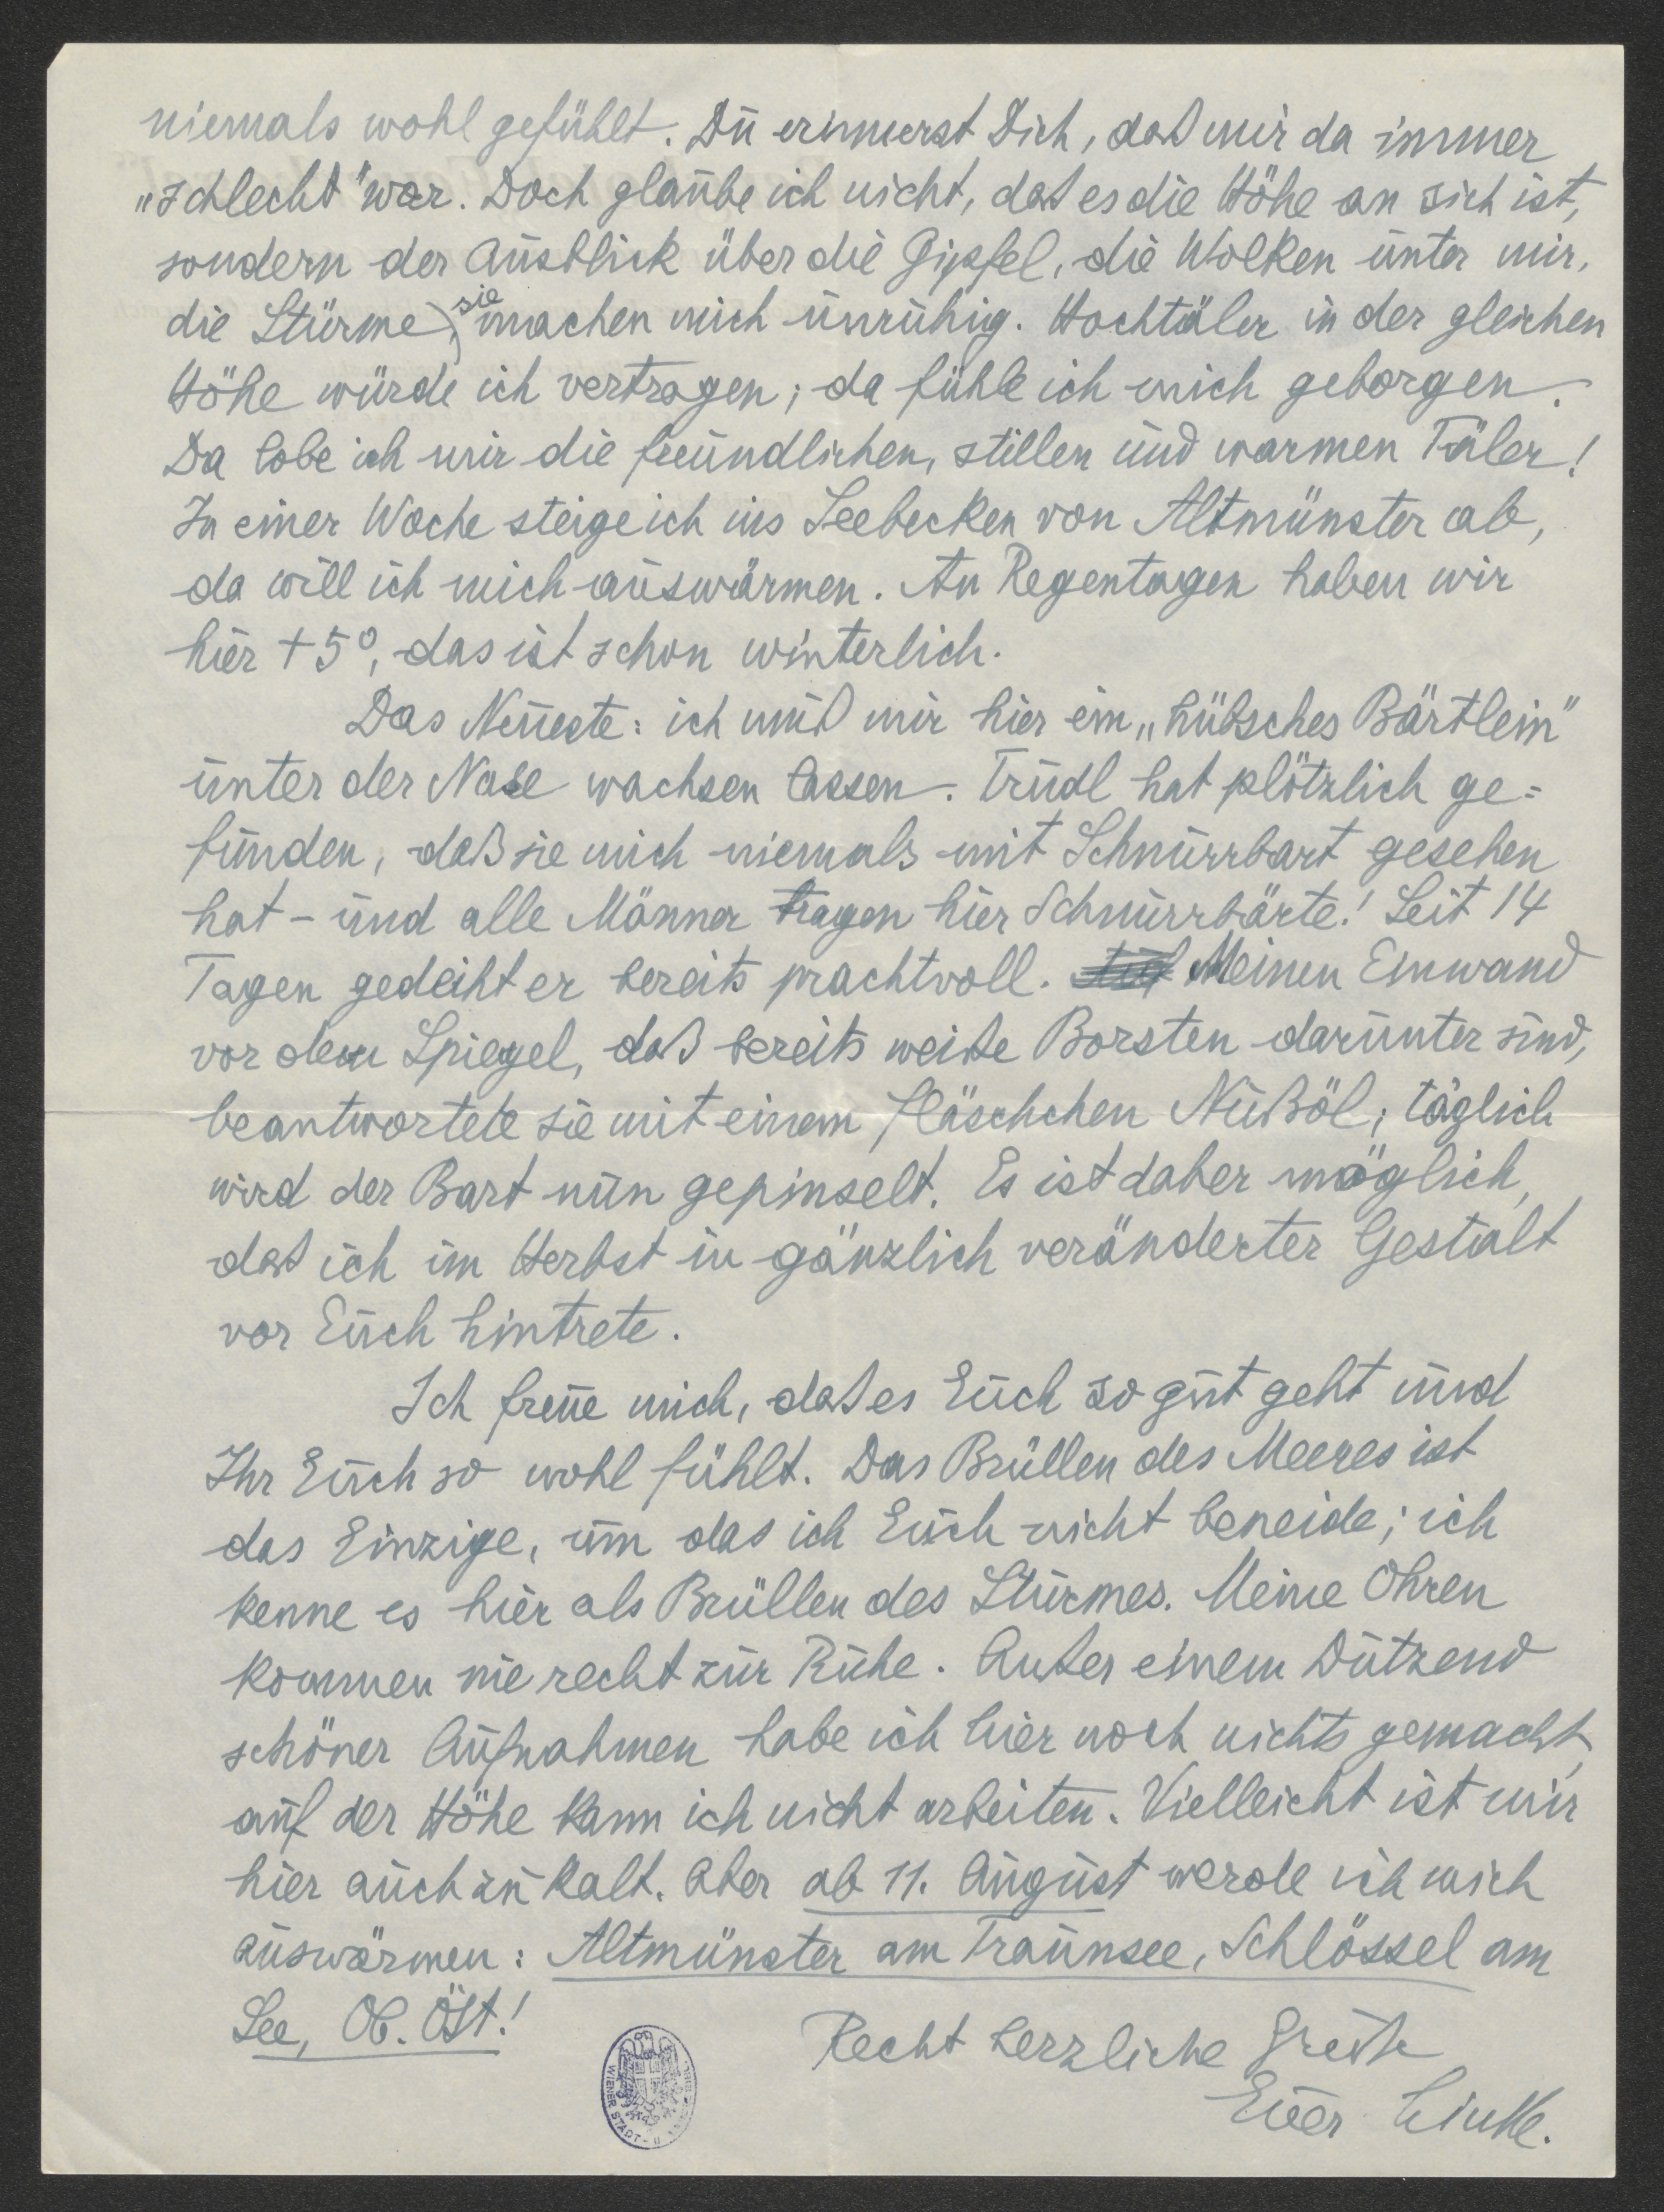 niemals wohl gefühlt. Du erinnerst Dich, daß mir da immer
„schlecht" war. Doch glaube ich nicht, daß es die Höhe an sich ist,
sondern der Ausblick über die Gipfel, die Wolken unter mir,
die Stürme), sie machen mich unruhig. Hochtäler in der gleichen
Höhe würde ich vertragen; da fühle ich mich geborgen.
Da lobe ich mir die freundlichen, stillen und warmen Täler!
In einer Woche steige ich ins Seebecken von Altmünster ab,
da will ich mich auswärmen. An Regentagen haben wir
hier +5°, das ist schon winterlich.
Das Neueste: ich muß mir hier ein „hübsches Bärtlein"
unter der Nase wachsen lassen. Trudl hat plötzlich ge=
funden, daß sie mich niemals mit Schnurrbart gesehen
hat – und alle Männer tragen hier Schnurrbärte! Seit 14
Tagen gedeiht er bereits prachtvoll. Meinen Einwand
vor dem Spiegel, daß bereits weiße Borsten darunter sind,
beantwortete sie mit einem Fläschchen Nußöl; täglich
wird der Bart nun gepinselt. Es ist daher möglich,
daß ich im Herbst in gänzlich veränderter Gestalt
vor Euch hintrete.
Ich freue mich, daß es Euch so gut geht und
Ihr Euch so wohl fühlt. Das Brüllen des Meeres ist
das Einzige, um das ich Euch nicht beneide; ich
kenne es hier als Brüllen des Sturmes. Meine Ohren
kommen nie recht zur Ruhe. Außer einem Dutzend
schöner Aufnahmen habe ich hier noch nichts gemacht,
auf der Höhe kann ich nicht arbeiten. Vielleicht ist mir
hier auch zu kalt. Aber ab 11. August werde ich mich
auswärmen: Altmünster am Traunsee, Schlössel am
See, Ob. Öst.!
Recht herzliche Grüße
Euer
WIENER STADT- U.